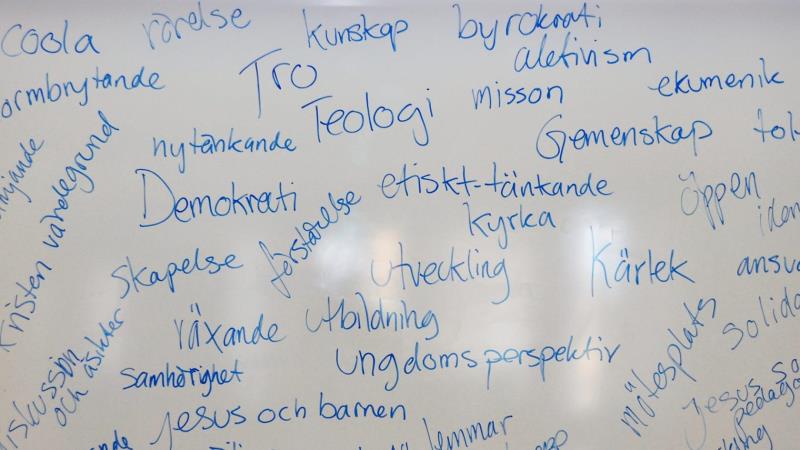 Coola rörelse kunskap byrokrati
aktivism
ormbrytande Tro misson ekumenik
Teologi
nytänkande Gemenskap tol
Kristen värdegrund
Demokrati etiskt-tänkande öppen
förståelse kyrka iden
skapelse utveckling Kärlek ansva
växande utbildning
diskussion
och åsikter
samhörighet ungdomsperspektiv mötesplats solida
Jesus och barnen
Jesus so
pedago
lemmar